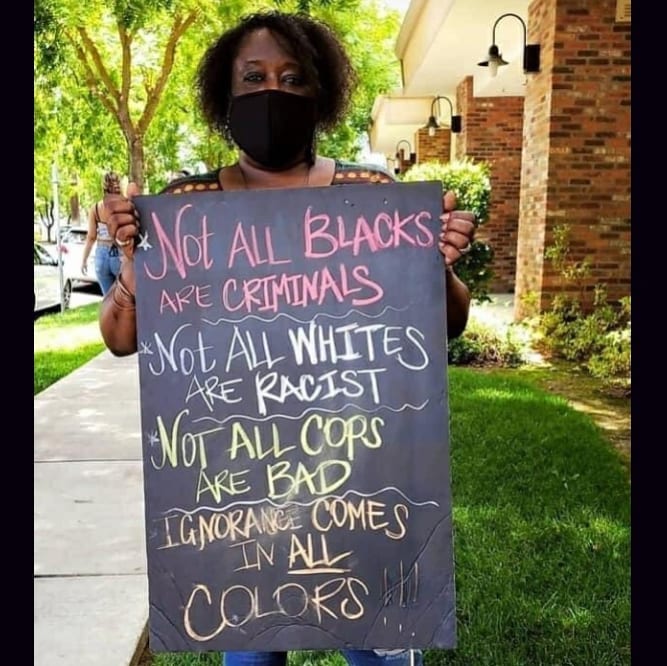 *Not ALL BLACKS
ARE CRIMINALS
*Not ALL WHITES
ARE RACIST
*NOT ALL COPS
ARE BAD
IGNORANCE COMES
IN ALL
COLORS!!!